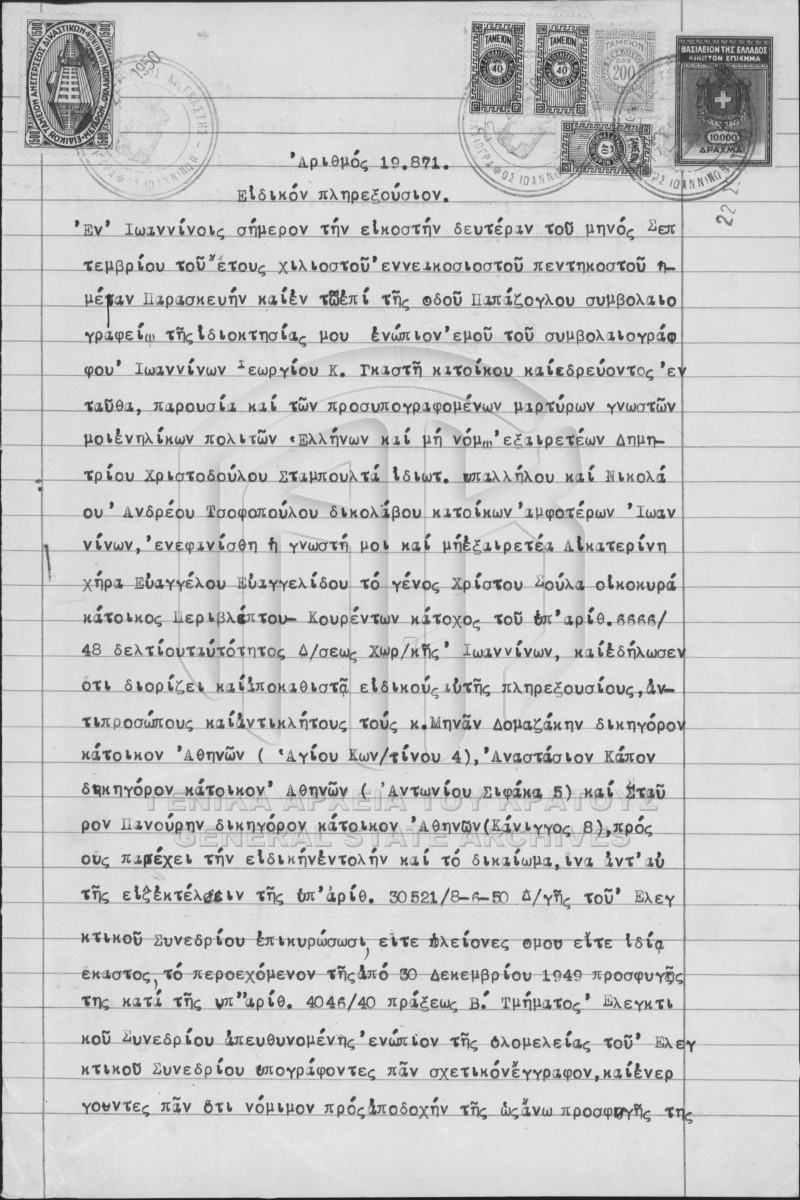 ΤΑΜΕΙΟΝ
40
ΤΑΜΕΙΟΝ
40
ΤΑΜΕΙΟΝ
ΔΡΑΧ
200
40
ΒΑΣΙΛΕΙΟΝ ΤΗΣ ΕΛΛΑΔΟΣ
ΚΙΝΗΤΟΝ ΕΠΙΣΗΜΑ
10.000
ΔΡΑΧΜΑΙ
500
500
1950
22
Ἀριθμός 19.871.
Εἰδικόν πληρεξούσιον.
Ἐν Ἰωαννίνοις σήμερον τήν εἰκοστήν δευτέραν τοῦ μηνός Σεπ
τεμβρίου τοῦ ἔτους χιλιοστοῦ ἐννεακοσιοστοῦ πεντηκοστοῦ ἡ-
μέραν Παρασκευήν καί ἐν τῷ ἐπί τῆς ὁδοῦ Παπάζογλου συμβολαιο
γραφείῳ τῆς ἰδιοκτησίας μου ἐνώπιον ἐμοῦ τοῦ συμβολαιογράφ
φου Ἰωαννίνων Γεωργίου Κ. Γκαστῆ κατοίκου καί ἑδρεύοντος ἐν
ταῦθα, παρουσία καί τῶν προσυπογραφομένων μαρτύρων γνωστῶν
μοι ἐνηλίκων πολιτῶν Ἑλλήνων καί μή νόμῳ ἐξαιρετέων Δημη-
τρίου Χριστοδούλου Σταμπουλτά ἰδιωτ. ὑπαλλήλου καί Νικολά
ου Ἀνδρέου Τσοφοπούλου δικολάβου κατοίκων ἀμφοτέρων Ἰωαν
νίνων, ἐνεφανίσθη ἡ γνωστή μοι καί μή ἐξαιρετέα Αἰκατερίνη
χήρα Εὐαγγέλου Εὐαγγελίδου τό γένος Χρίστου Σούλα οἰκοκυρά
κάτοικος Περιβλέπτου- Κουρέντων κάτοχος τοῦ ὑπ' ἀρίθ. 6666/
48 δελτίου ταυτότητος Δ/σεως Χωρ/κῆς Ἰωαννίνων, καί ἐδήλωσεν
ὅτι διορίζει καί ἀποκαθιστᾷ εἰδικούς αὐτῆς πληρεξουσίους, ἀν-
τιπροσώπους καί ἀντικλήτους τούς κ. Μηνᾶν Δομαζάκην δικηγόρον
κάτοικον Ἀθηνῶν ( Ἁγίου Κων/τίνου 4), Ἀναστάσιον Κάπον
δικηγόρον κάτοικον Ἀθηνῶν ( Ἀντωνίου Σιφάκα 5) καί Σταῦ
ρον Πανούρην δικηγόρον κάτοικον Ἀθηνῶν (Κάνιγγος 8), πρός
ους παρέχει τήν εἰδικήν ἐντολήν καί τό δικαίωμα, ἵνα ἀντ' αὐ
τῆς εἰς ἐκτέλεσιν τῆς ὑπ' ἀρίθ. 30521/8-6-50 Δ/γῆς τοῦ Ἐλεγ
κτικοῦ Συνεδρίου ἐπικυρώσωσι, εἴτε πλείονες ὁμοῦ εἴτε ἰδίᾳ
ἕκαστος, τό περοεχόμενον τῆς ἀπό 30 Δεκεμβρίου 1949 προσφυγῆς
της κατά τῆς ὑπ' ἀρίθ. 4046/40 πράξεως Β. Τμήματος Ἐλεγκτι
κοῦ Συνεδρίου ἀπευθυνομένης ἐνώπιον τῆς ὁλομελείας τοῦ Ἐλεγ
κτικοῦ Συνεδρίου ὑπογράφοντες πᾶν σχετικόν ἔγγραφον, καί ἐνερ
γοῦντες πᾶν ὅτι νόμιμον πρός ἀποδοχήν τῆς ὡς ἄνω προσφυγῆς της
ΓΕΝΙΚΑ ΑΡΧΕΙΑ ΤΟΥ ΚΡΑΤΟΥΣ
GENERAL STATE ARCHIVES